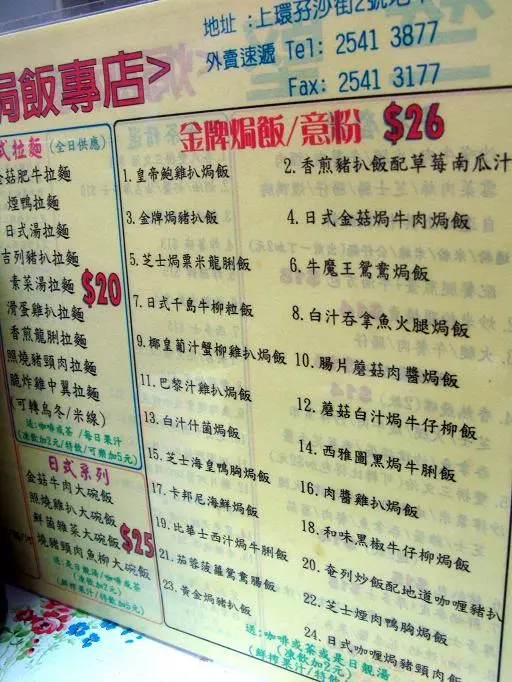 地址：上環孖沙街2號地
外賣速遞 Tel: 2541 3877
Fax: 2541 3177
焗飯專店>
式拉麵(全日供應)
金菇肥牛拉麵
煙鴨拉麵
日式湯拉麵
吉列豬扒拉麵
素菜湯拉麵 $20
滑蛋雞扒拉麵
香煎龍脷拉麵
照燒豬頸肉拉麵
脆炸雞中翼拉麵
(可轉烏冬/米線)
送：咖啡或茶/每日果汁
(凍飲加2元/特飲/可樂加5元)
日式系列
金菇牛肉大碗飯
照燒雞扒大碗飯
鮮菌雜菜大碗飯 $25
燒豬頸肉魚柳大碗飯
送：是日靚湯/咖啡或茶
(凍飲加2元)
(鮮榨果汁/特飲加5元)
金牌焗飯/意粉 $26
1.皇帝鮑雞扒焗飯
2.香煎豬扒飯配草莓南瓜汁
3.金牌焗豬扒飯
4.日式金菇焗牛肉焗飯
5.芝士焗粟米龍脷飯
6.牛魔王鴛鴦焗飯
7.日式千島牛柳粒飯
8.白汁吞拿魚火腿焗飯
9.椰皇葡汁蟹柳雞扒焗飯
10.腸片蘑菇肉醬焗飯
11.巴黎汁雞扒焗飯
12.蘑菇白汁焗牛仔柳飯
13.白汁什菌焗飯
14.西雅圖黑焗牛脷飯
15.芝士海皇鴨胸焗飯
16.肉醬雞扒焗飯
17.卡邦尼海鮮焗飯
18.和味黑椒牛仔柳焗飯
19.比華士西汁焗牛脷飯
20.奄列炒飯配地道咖喱豬扒
21.茄蓉菠蘿鴛鴦腸飯
22.芝士煙肉鴨胸焗飯
23.黃金焗豬扒飯
24.日式咖喱焗豬頸肉飯
送：咖啡或茶或是日靚湯
(凍飲加2元)
(鮮榨果汁/特飲